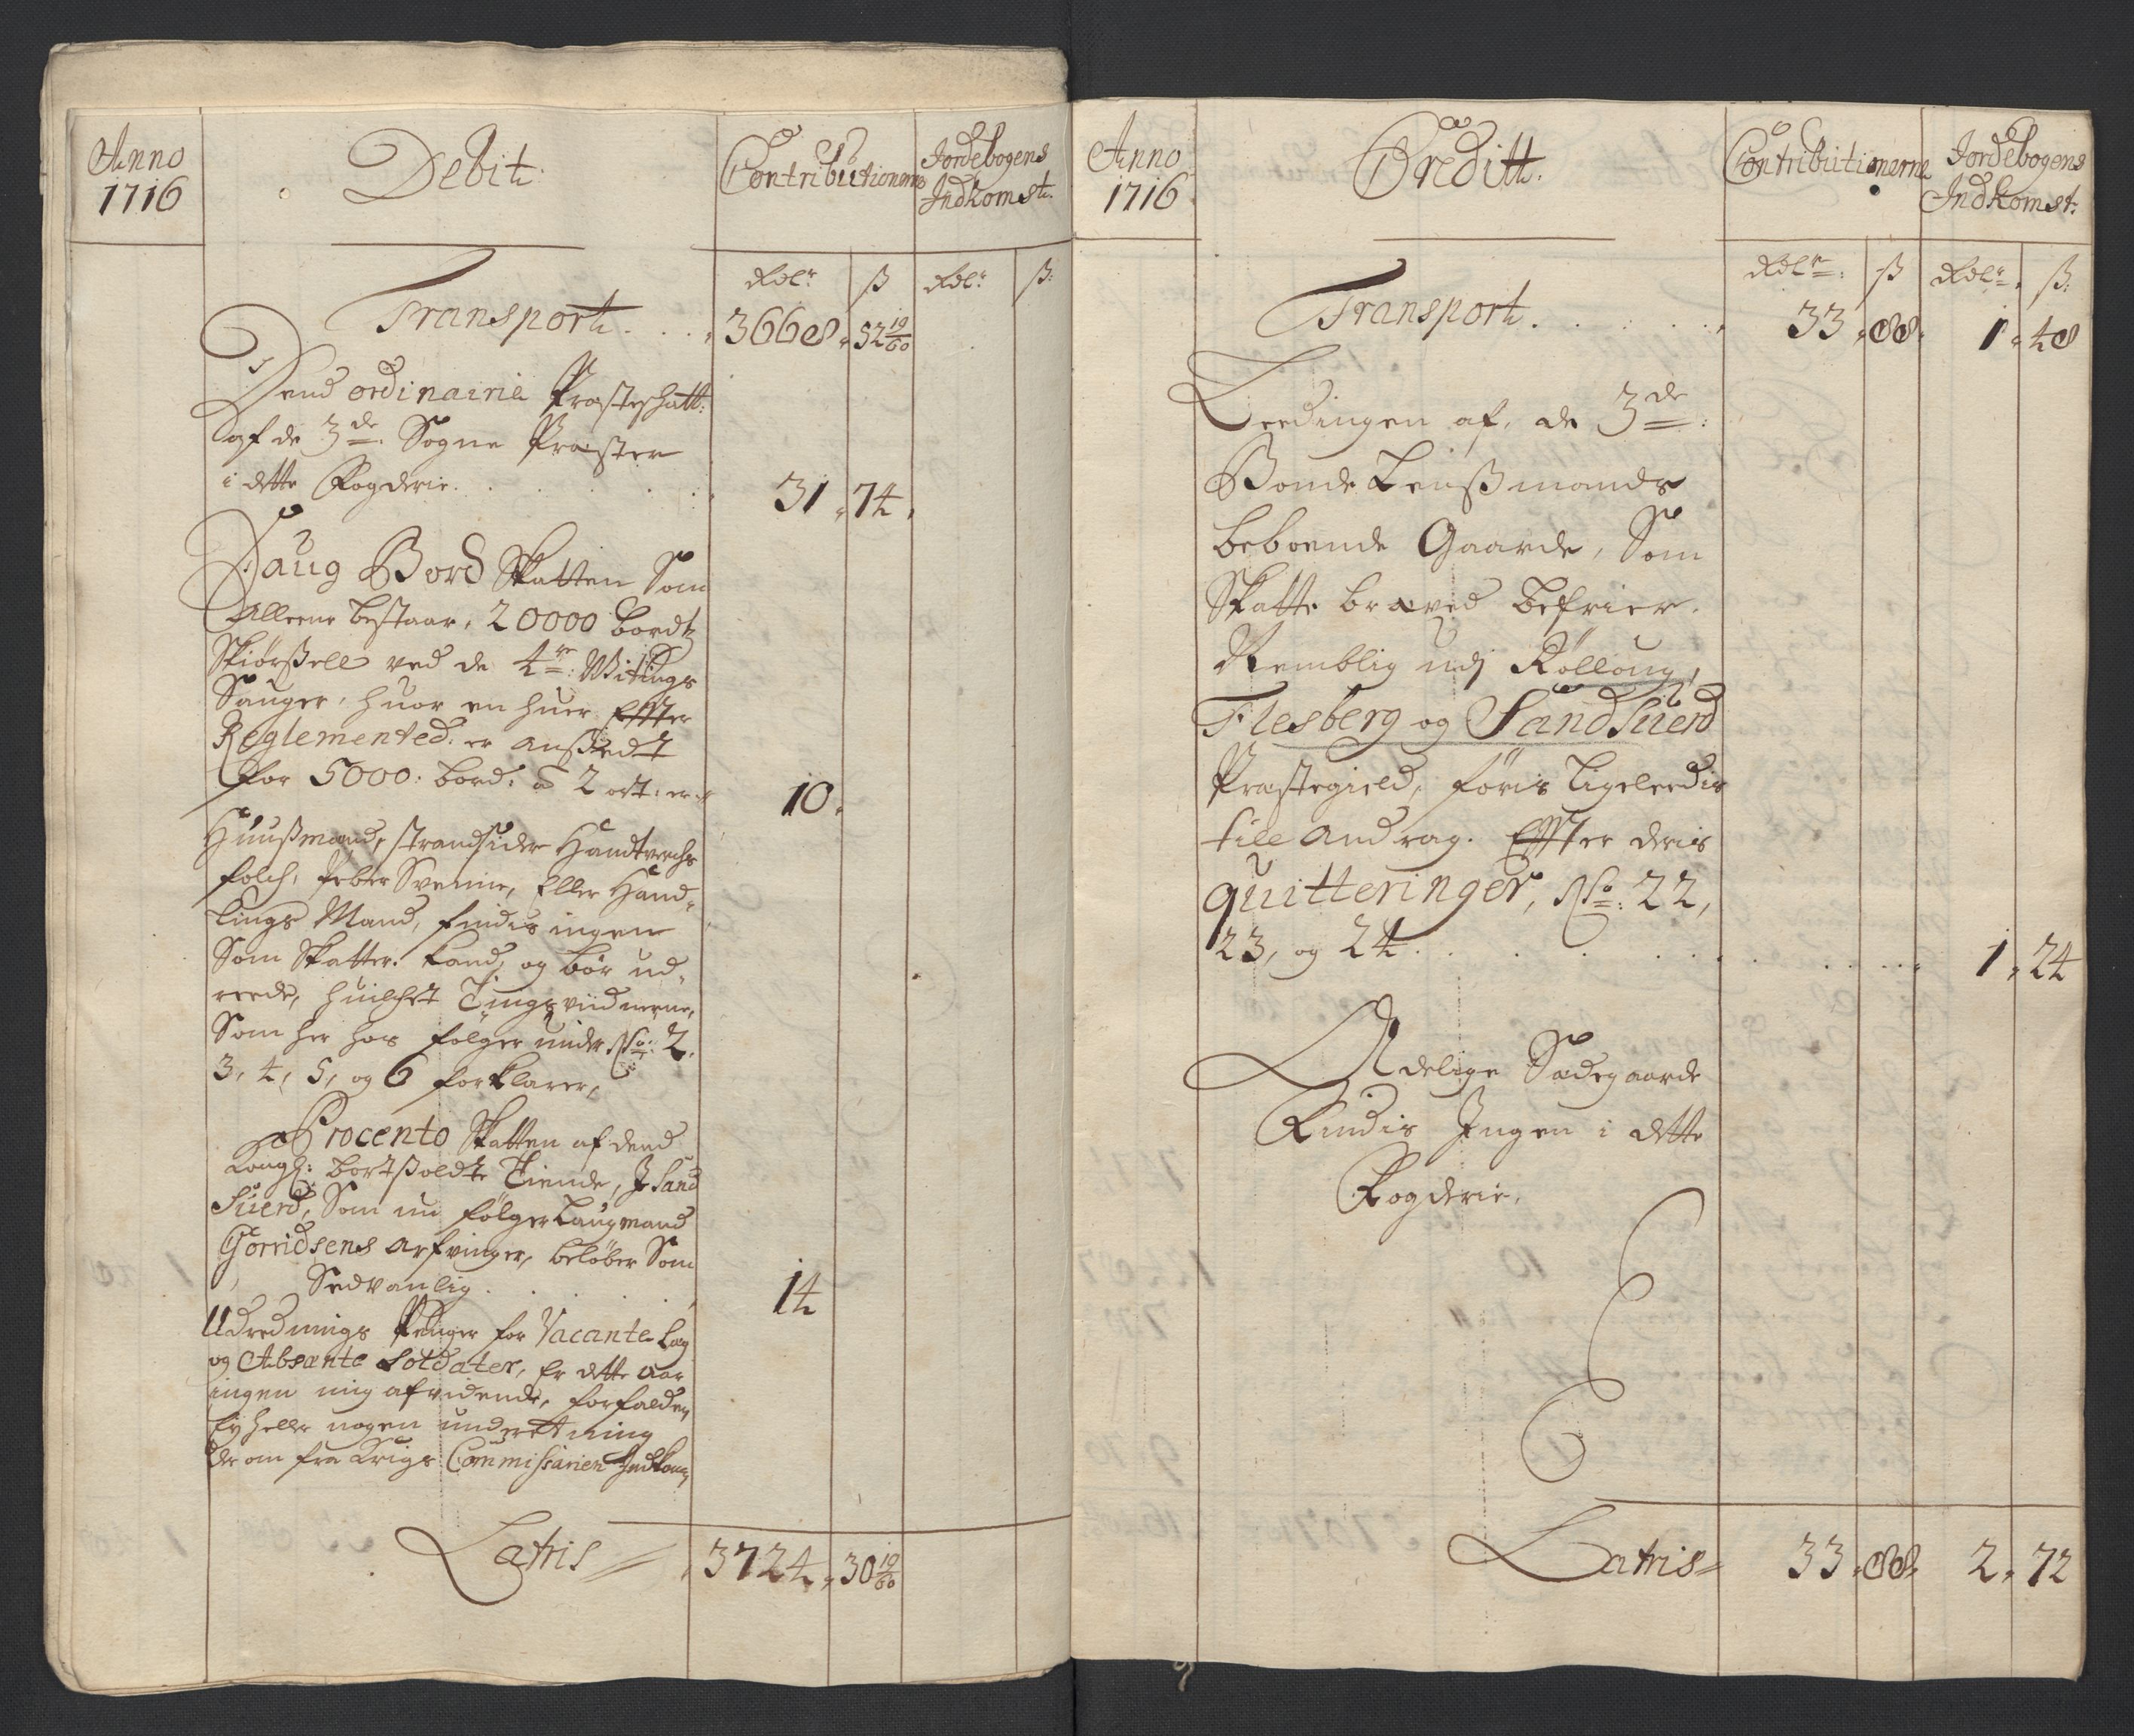 Anno
1716
Debit:
Contributionerne
Jordebogens
Indkomst:
Rdlr: ß Rdlr: ß:
Transport. . . 3668 „ 52 19/60
Dend ordinairie Præsteschatt:
af de 3de: Sogne Præster
i dette Fogderie. . . . . 31 „ 74 „
Saug Bord Skatten Som
Alleene bestaar, 20000 bordtz
Skiørßell ved de 4re: Witings
Sauger, huor en huer Effter
Reglemented. er ansßedt
for 5000: bord: â 2 ort: er 10 „
Huußmænd, strandsider Handtverchs
folch, Peber Svenne, Eller Hand-
lings Mænd, findis ingen
Som Skatter. kand, og bør ud-
reede, huilchet Tingsviidnerne,
Som her hos følger under No: 2.
3, 4, 5, og 6 forklarer,
Procento Skatten af dend
Kongl: bortßoldte Tiende, J Sand
Suerd, Som nu følger Laugmand
Gorridsens arfvinger, beløber Som
Sedvanlig . . . . . 14
Udrednings Penger for Vacante Læg
og Absente Soldater, Er dette aar
ingen mig afvidende, forfalden,
Ey heller nogen underetning
der om fra Krigs Commissarien Indkom,
Latris 3724 „ 30 19/60
Anno
1716
Creditt:
Contributionerne
Jordebogens
Indkomst:
Rdlr: ß Rdlr: ß:
Transport. . . . . 33 „ 88 „ 1 „ 48
Leedingen af, de 3de:
Bonde Lenßmænds
beboende Gaarde, Som
Skatte bræved befrier.
Nemblig udj Rolloug,
Flesberg og Sandsuerd
Præstegield, føris ligeleedis
till andrag. Effter deris
quitteringer, No: 22,
23, og 24. . . . . . . . . 1 „ 24
Adelige Sædegaarde
Findis Ingen i dette
Fogderie.
Latris 33 „ 88 „ 2 „ 72